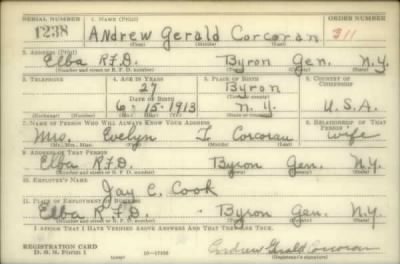 SERIAL NUMBER 1. NAME (Print) ORDER NUMBER
1238 Andrew Gerald Corcoran 311
(First) (Middle) (Last)
2. ADDRESS (Print)
Elba R.F.D. Byron Gen. N.Y.
(Number and street or R. F. D. number) (Town) (County) (State)
3. TELEPHONE 4. AGE IN YEARS 5. PLACE OF BIRTH 6. COUNTRY OF CITIZENSHIP
27 Byron
DATE OF BIRTH (Town or county)
6 15 1913 N.Y. U.S.A.
(Exchange) (Number) (Mo.) (Day) (Yr.) (State or country)
7. NAME OF PERSON WHO WILL ALWAYS KNOW YOUR ADDRESS 8. RELATIONSHIP OF THAT PERSON
Mrs. Evelyn Corcoran wife
(Mr., Mrs., Miss) (First) (Middle) (Last)
9. ADDRESS OF THAT PERSON
Elba R.F.D. Byron Gen. N.Y.
(Number and street or R. F. D. number) (Town) (County) (State)
10. EMPLOYER'S NAME
Jay C. Cook
11. PLACE OF EMPLOYMENT OR BUSINESS
Elba R.F.D. Byron Gen. N.Y.
(Number and street or R. F. D. number) (Town) (County) (State)
I AFFIRM THAT I HAVE VERIFIED ABOVE ANSWERS AND THAT THEY ARE TRUE.
REGISTRATION CARD
D. S. S. FORM 1 Andrew Gerald Corcoran
(over) (Registrant's signature)